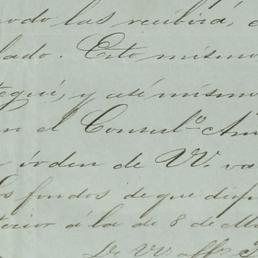 odo las recibirá, e
lado. Esto mismo
tegui, y así mismo
en el Consul.º Am
órden de VV. va
os fondos de que disp
terior á la de 8 de Ma
VV. aff.